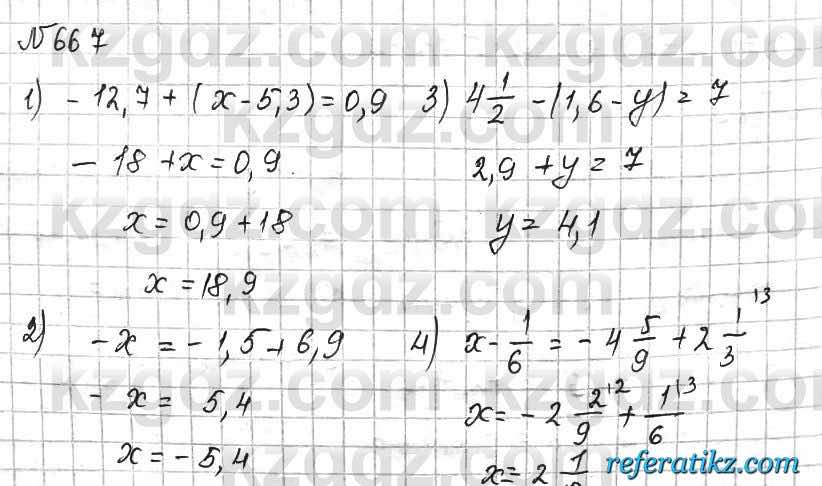 №667
1) - 12,7 + (x - 5,3) = 0,9
- 18 + x = 0,9
x = 0,9 + 18
x = 18,9
2) - x = - 1,5 + 6,9
- x = 5,4
x = - 5,4
3) 4 1/2 - (1,6 - y) = 7
2,9 + y = 7
y = 4,1
4) x - 1/6 = - 4 5/9 + 2 1/3 \3
x = - 2 2/9 \2 + 1/6 \3
x = 2
referatikz.com
kzgdz.com